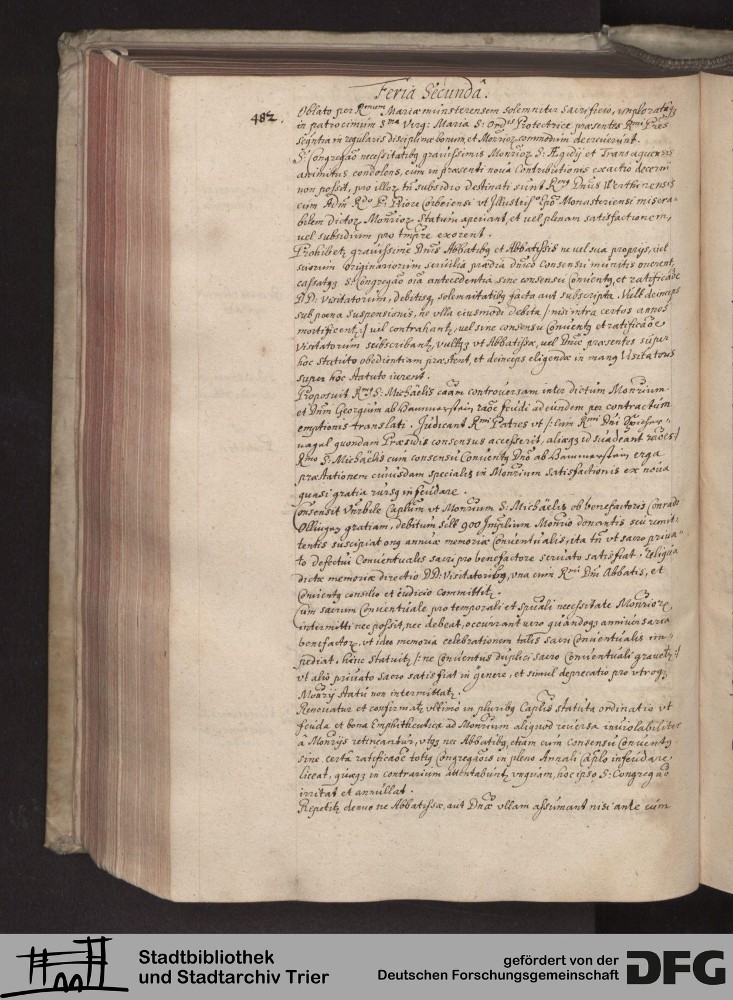 Feria Secundâ.
482.
Oblato per Rmum Mariæmünsterensem solemniter sacrificio, imploratoq3
in patrocinium Sma Virg: Maria S: Ordis Protectrice præsentes Rmi Pres
seqntia in regularis disciplinæ bonum, et Monrioz commodum decreverunt.
S: Congregao necessitatibq gravissimis Monrioz S: Ægidij et Transaquensis
animitus condolens, cum in præsenti nova Contributionis exactio decerni
non possit, pro illoz tn subsidio destinati sunt Rmq Dnus Werthinensis
cum Adm Rdo P: Priore Corbeiensi vt Illustrissº Epo Monasteriensi misera-
bilem dictoz Monrioz Statum aperiant, et vel plenam satisfactionem,
vel subsidium pro tmpre exorent.
Prohibetz gravissime Dnis Abbatibq et Abbatissis ne vel sua propriis, vel
suorum Originariorum servilia prædia dnico Consensu munitis onerent,
cassatq3 S: Congregao oia antecedentia sine consensu Conventq, et ratificaoe
DD: Visitatorum, debitisq3 solemnitatibq facta aut subscripta. Vult deinceps
sub poena Suspensionis, ne vlla eiusmodi debita /: nisi intra certos annos
mortificentz :/ vel contrahantz, vel sine consensu Conventq et ratificaoe
Visitatorum subscribantz, vultq3 vt Abbatissæ, vel Dnæ præsentes super
hoc statuto obedientiam præstent, et deinceps eligendæ in manq Visitatoris
super hoc statuto iurent.
Proposuit Rmq S: Michaelis caam controversam inter dictum Monrium
et Dnm Georgium ab Baumerstain raoe feudi ad eundem per contractum
emptionis translati. Judicant Rmi Patres vt /: cum Rmi Dni
quondam Præsidis consensus accesserit, aliæq3 id suadeant raoes :/
Rmo S: Michaelis cum consensu Conventq Dno ab Baumerstain erga
præstationem cuiusdam specialis in Monrium satisfactionis ex nova
quasi gratia rursq infeudare.
Consensit Vnrbile Caplum vt Monrium S: Michaelis ob benefactoris Conradi
gratiam, debitum sclt 900 Imperlium Monrio donantis seu remit-
tentis suscipiat onq annuæ memoriæ Conventualis, ita tn vt sacro priva-
to defectui Conventualis sacri pro benefactore servato satisfiat. Reliqua
dictæ memoriæ directio DD: Visitatoribq, vna cum Rmi Dni Abbatis, et
Conventq consilio et iudicio committitz.
Cum sacrum Conventuale pro temporali et spuali necessitate Monrioz,
intermitti nec possit, nec debeat, occurrant vero quandoq3 anniversaria
benefactoz, vt ideo memoria celebrationem talis sacri Conventualis im-
pediat, hinc statuitz /: ne Conventus duplici sacro Conventuali gravetz :/
vt alio privato sacro satisfiat in genere, et simul deprecatio pro vtroq3
Monrij statu non intermittatz.
Renovatur et confirmatz vltimo in pluribq Caplis statuta ordinatio vt
feuda et bona Emphitheutica ad Monrium aliquod reversa inviolabiliter
â Monrijs retineantur, vtq3 nec Abbatibq, etiam cum consensu Conventq
sine certa ratificaoe totiq Congregaois in pleno Annali Caplo infeudare
liceat, quæq3 in contrarium attentabuntz vnquam, hoc ipso S: Congregao
irritat et annullat.
Repetitz denuo ne Abbatissæ, aut Dnæ vllam assumant nisi ante cum
Stadtbibliothek
und Stadtarchiv Trier
gefördert von der
Deutschen Forschungsgemeinschaft
DFG